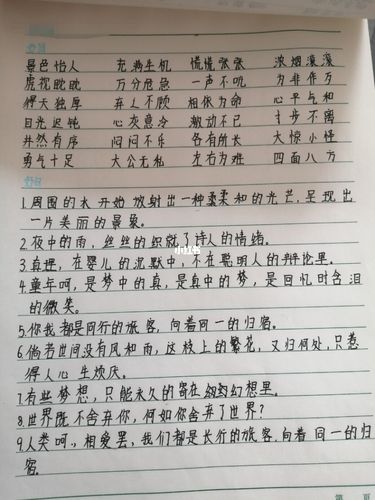 好词
景色怡人 充满生机 慌慌张张 浓烟滚滚
虎视眈眈 万分危急 一声不吭 为非作歹
得天独厚 弃之不顾 相依为命 心平气和
目光迟钝 心灰意冷 激动不已 寸步不离
井然有序 闷闷不乐 各有所长 大惊小怪
勇气十足 大公无私 左右为难 四面八方
好句
1.周围的木开始放射出一种柔柔和的光芒,呈现出
一片美丽的景象。
2.夜中的雨,丝丝的织就了诗人的情绪。
3.真理,在婴儿的沉默中,不在聪明人的辩论里。
4.童年呵,是梦中的真,是真中的梦,是回忆时含泪
的微笑。
5.你我都是同行的旅客,向着同一的归宿。
6.倘若世间没有风和雨,这枝上的繁花,又归何处,只惹
得人心生烦厌。
7.有些梦想,只能永久的寄在缥缈幻想里。
8.世界既不舍弃你,何如你舍弃了世界?
9.人类呵,相爱罢,我们都是长行的旅客,向着同一的归
宿。
小红书
第 页